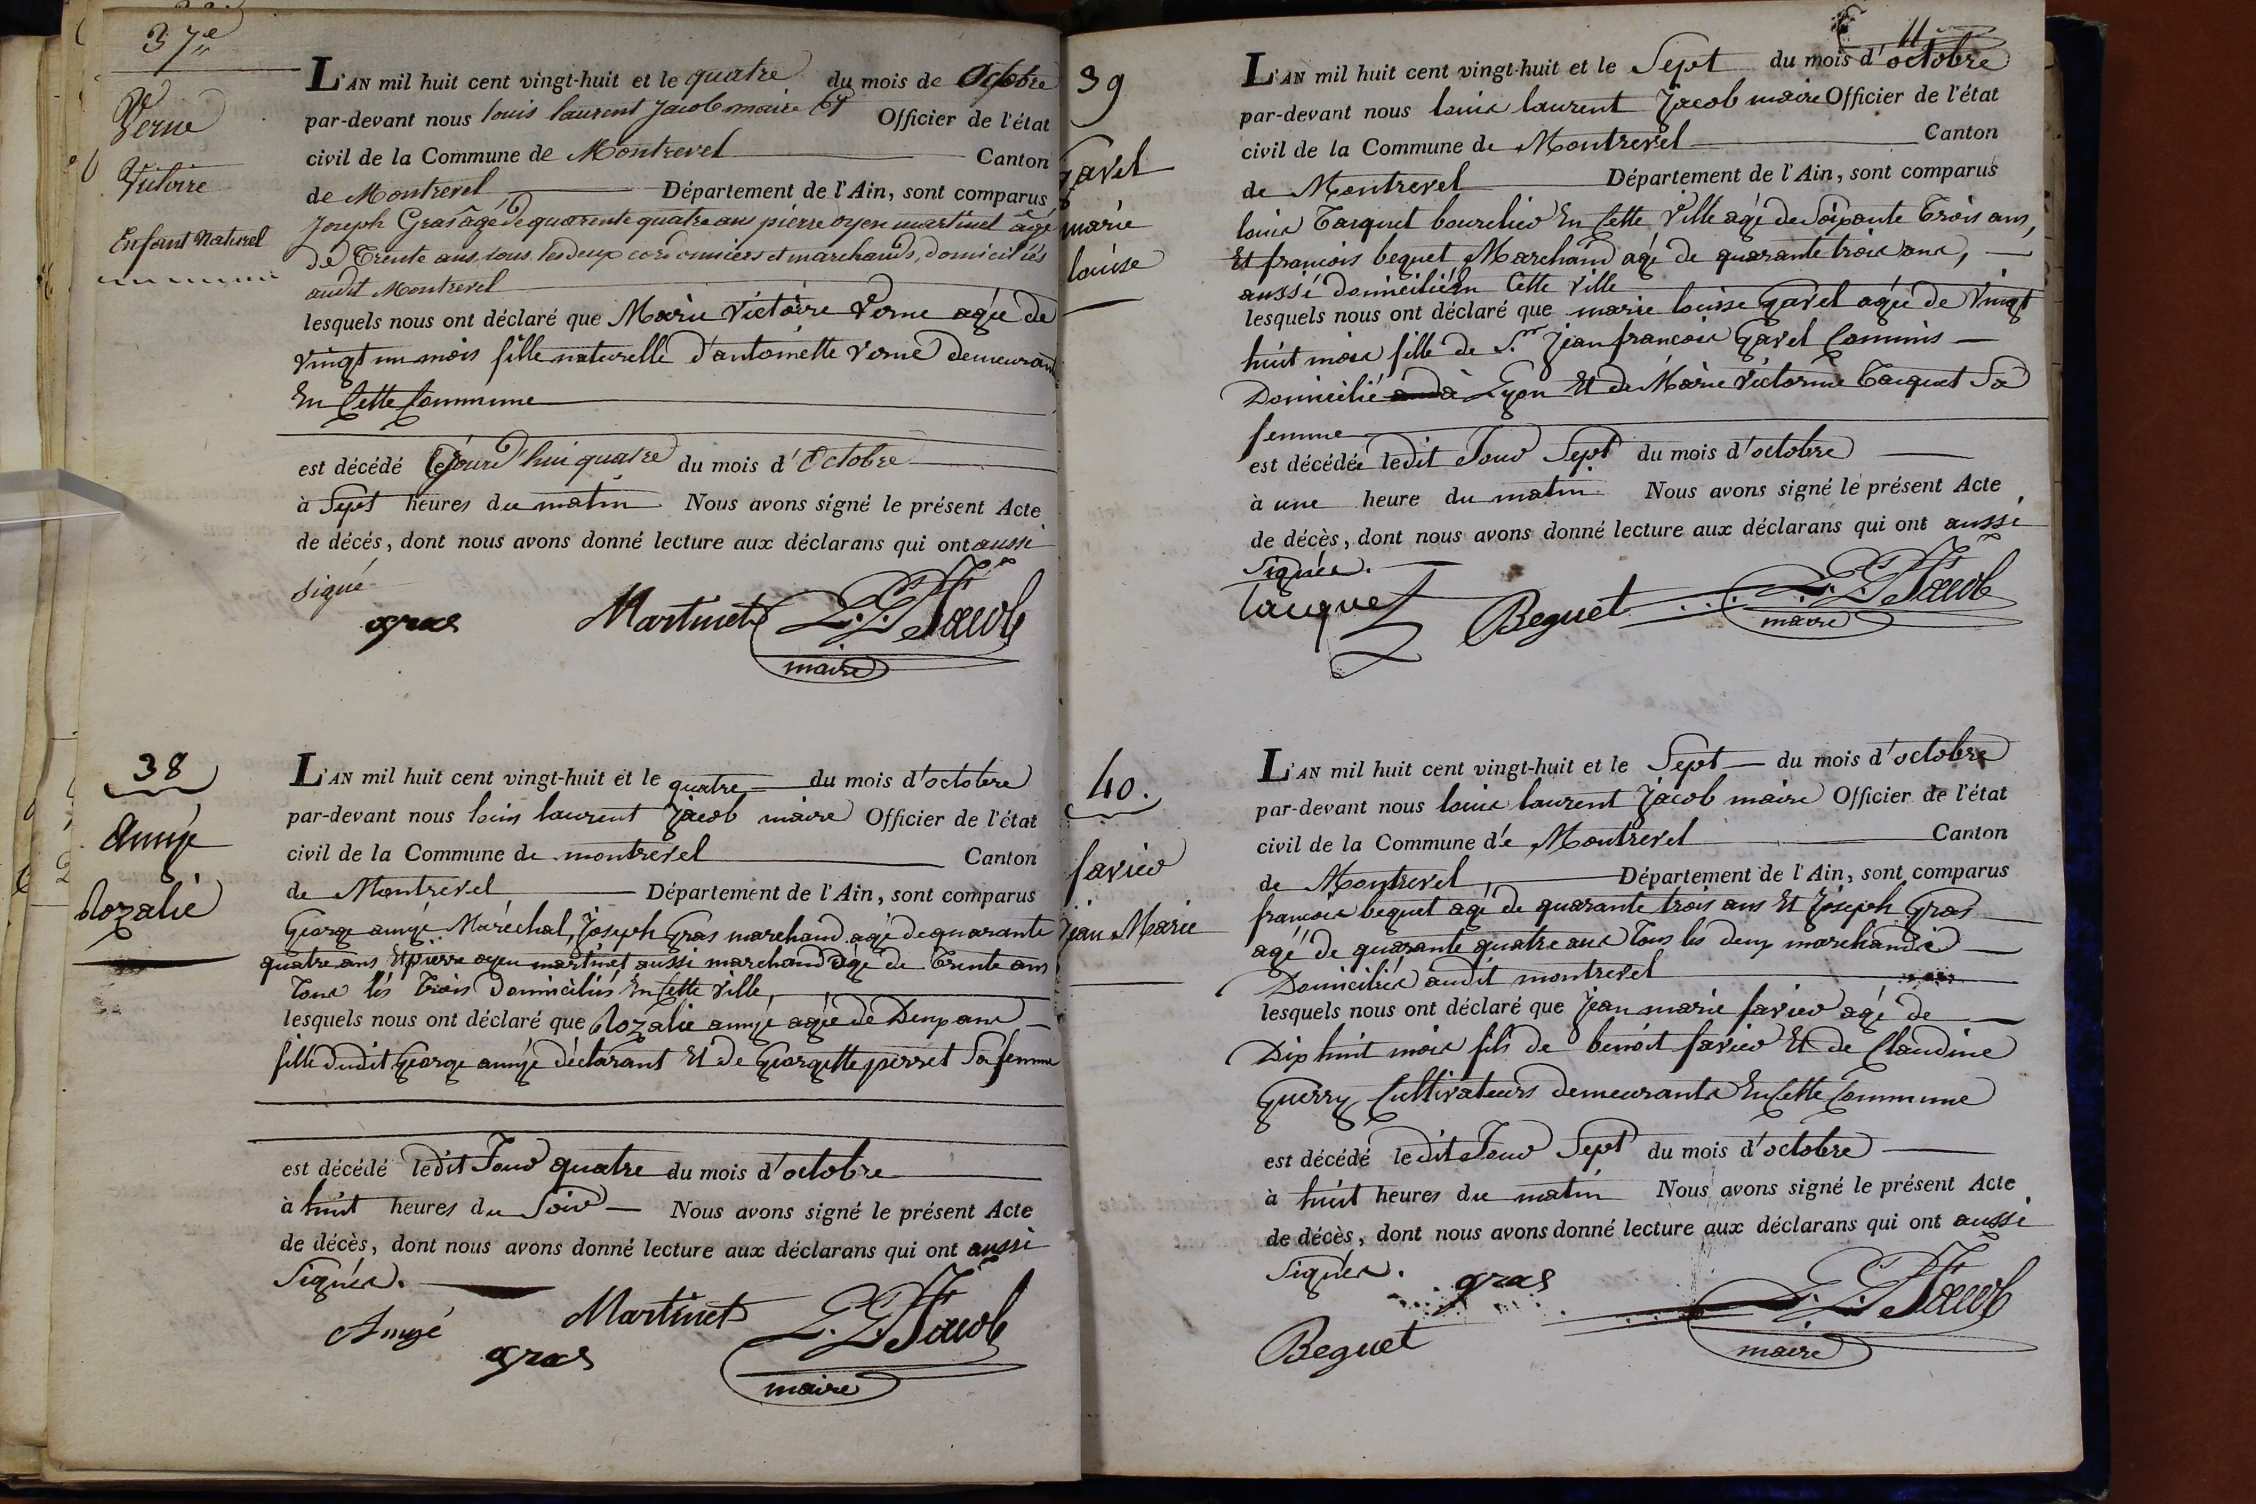 37e
Verne
Victoire
Enfant Naturel
L'AN mil huit cent vingt-huit et le quatre du mois de Octobre
par-devant nous louis laurent Jacob maire Officier de l'état
civil de la Commune de Montrevel Canton
de Montrevel Département de l'Ain, sont comparus
Joseph Gras âgé de quarente quatre ans pierre oyen martinet âgé
de Trente ans, tous les deux cordonniers et marchands, domiciliés
audit Montrevel
lesquels nous ont déclaré que Marie Victoire Verne agée de
vingt un mois fille naturelle d'antoinette verne demeurant
En Cette Commune
est décédé Cejourd'hui quatre du mois d'Octobre
à Sept heures du matin Nous avons signé le présent Acte
de décés, dont nous avons donné lecture aux déclarans qui ont aussi
signé
gras Martinet L. L. Jacob
maire
38
amyé
Rozalie
L'AN mil huit cent vingt-huit et le quatre du mois d'octobre
par-devant nous louis laurent Jacob maire Officier de l'état
civil de la Commune de montrevel Canton
de Montrevel Département de l'Ain, sont comparus
George amyé Maréchal, Joseph Gras marchand agé de quarante
quatre ans Et pierre oyen martinet aussi marchand agé de Trente ans
Tous les Trois Domiciliés En Cette Ville,
lesquels nous ont déclaré que Rozalie amyé agée de Deux ans
fille dudit George amyé déclarant Et de Georgette perret Sa femme
est décédé ledit Jour quatre du mois d'octobre
à huit heures du Soir Nous avons signé le présent Acte
de décès, dont nous avons donné lecture aux déclarans qui ont aussi
Signés.
Amyé Martinet L. L. Jacob
gras
maire
11
39
Gavel
marie
louise
L'AN mil huit cent vingt-huit et le Sept du mois d'octobre
par-devant nous louis laurent Jacob maire Officier de l'état
civil de la Commune de Montrevel Canton
de Montrevel Département de l'Ain, sont comparus
louis Tacquet bourelier En Cette Ville agé de Soixante Trois ans,
Et francois bequet Marchand agé de quarante trois ans,
aussi domicilié En Cette Ville
lesquels nous ont déclaré que marie louise gavel agée de Vingt
huit mois fille de Sr Jean francois Gavel Commis
Domicilié à Lyon Et de Marie Victorine Tacquet Sa
femme
est décédée ledit Jour Sept du mois d'octobre
à une heure du matin Nous avons signé le présent Acte
de décès, dont nous avons donné lecture aux déclarans qui ont aussi
Signés.
Tacquet Bequet L. L. Jacob
maire
40.
favier
Jean Marie
L'AN mil huit cent vingt-huit et le Sept du mois d'octobre
par-devant nous louis laurent Jacob maire Officier de l'état
civil de la Commune de Montrevel Canton
de Montrevel Département de l'Ain, sont comparus
francois bequet agé de quarante trois ans Et Joseph Gras
agé de quarante quatre ans Tous les deux marchands
Domiciliés audit montrevel
lesquels nous ont déclaré que Jean marie favier agé de
Dix huit mois fils de benoit favier Et de Claudine
Guerry Cultivateurs demeurants En Cette Commune
est décédé ledit Jour Sept du mois d'octobre
à huit heures du matin Nous avons signé le présent Acte
de décès, dont nous avons donné lecture aux déclarans qui ont aussi
Signés.
gras L. L. Jacob
Bequet maire